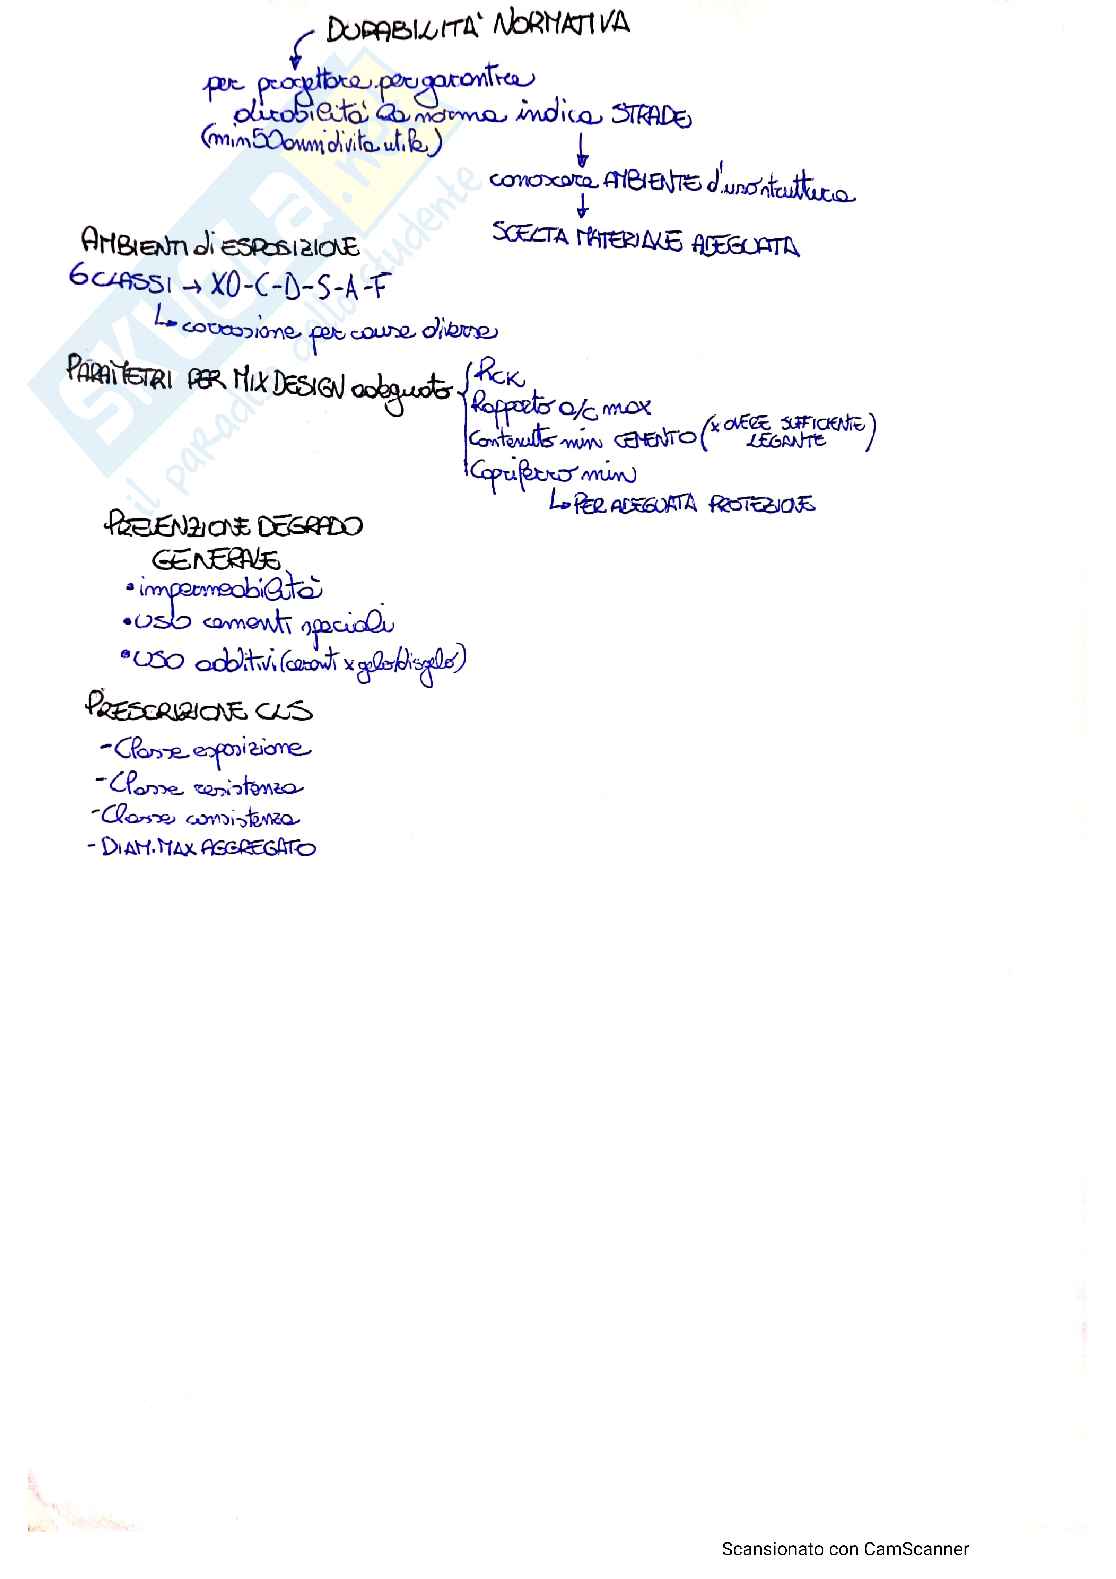 DURABILITÀ NORMATIVA
per progettare per garantire
durabilità la norma indica STRADE
(min 50 anni di vita utile)
conoscere AMBIENTE d'uso struttura
SCELTA MATERIALE ADEGUATA
AMBIENTI di ESPOSIZIONE
6 CLASSI → X0-C-D-S-A-F
↳ corrosione per cause diverse
PARAMETRI PER MIX DESIGN adeguato
Rck
Rapporto a/c max
Contenuto min CEMENTO (x AVERE SUFFICIENTE LEGANTE)
Copriferro min
↳ PER ADEGUATA PROTEZIONE
PREVENZIONE DEGRADO
GENERALE
• impermeabilità
• uso cementi speciali
• uso additivi (aeranti x gelo/disgelo)
PRESCRIZIONE CLS
- Classe esposizione
- Classe resistenza
- Classe consistenza
- DIAM. MAX AGGREGATO
SKUola.net
il paradiso dello studente
Scansionato con CamScanner